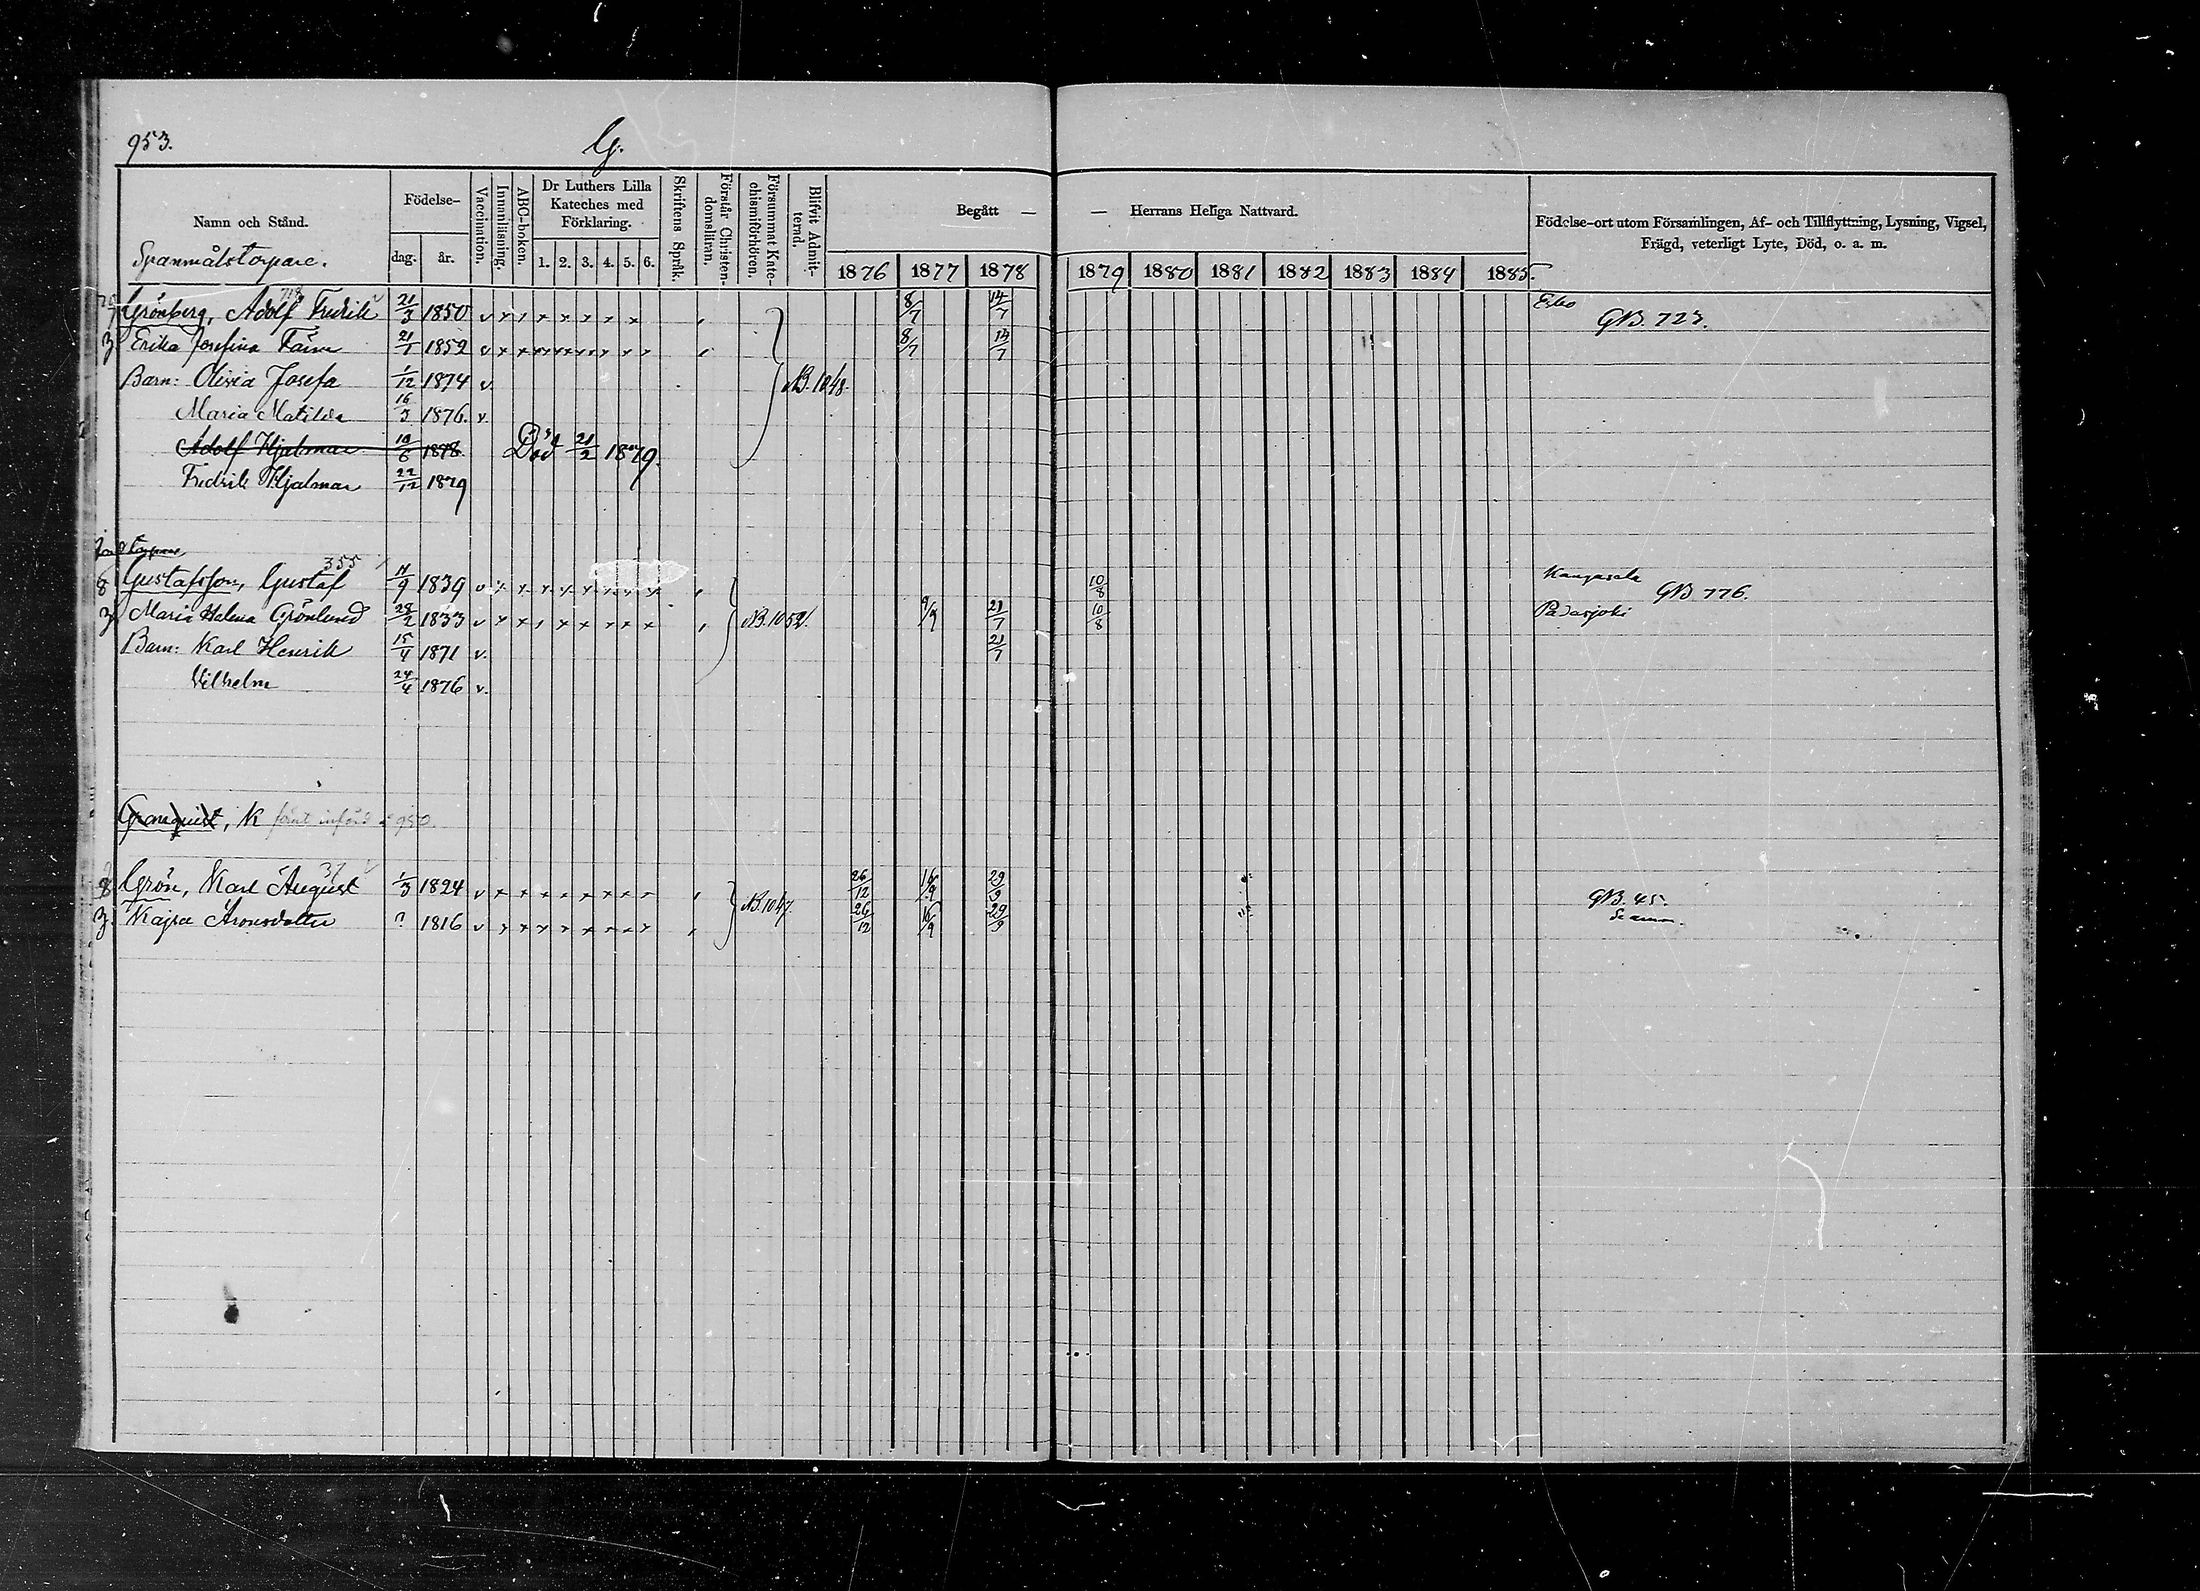 953. G.
Namn och Stånd.
Födelse-
dag. år.
Vaccination.
Innanläsning.
ABC-boken.
Dr Luthers Lilla
Kateches med
Förklaring.
1. 2. 3. 4. 5. 6.
Skriftens Språk.
Förstår Christen-
domsläran.
Försummat Kate-
chismiförhören.
Blifvit Admit-
terad.
Begått — — Herrans Heliga Nattvard.
1876 1877 1878 1879 1880 1881 1882 1883 1884 1885.
Födelse-ort utom Församlingen, Af- och Tillflyttning, Lysning, Vigsel,
Frägd, veterligt Lyte, Död, o. a. m.
Spanmålstorpare.
Grönberg, Adolf Fredrik 21/3 1850 8/7 14/7 Esbo GB. 723.
Erika Josefina 21/1 1852 8/7 14/7
Barn: Olivia Josefa 1/12 1874 v. NB. 1048.
Maria Matilda 16/3 1876. v.
Adolf Hjalmar 10/6 1878 Död 21/2 1879.
Fredrik Hjalmar 22/12 1879
355
Gustafsson, Gustaf 11/9 1839 10/8 Kangasala GB 776.
Maria Helena Grönlund 28/2 1833 NB. 1052. 9/9 21/7 10/8 Padasjoki
Barn: Karl Henrik 15/4 1871 v. 21/7
Vilhelm 24/4 1876 v.
Granquist, K införd 950.
37
Grön, Karl August 1/3 1824 26/12 16/9 29/9 GB. 45.
Kajsa Aronsdotter ? 1816 NB. 1047. 26/12 16/9 29/9